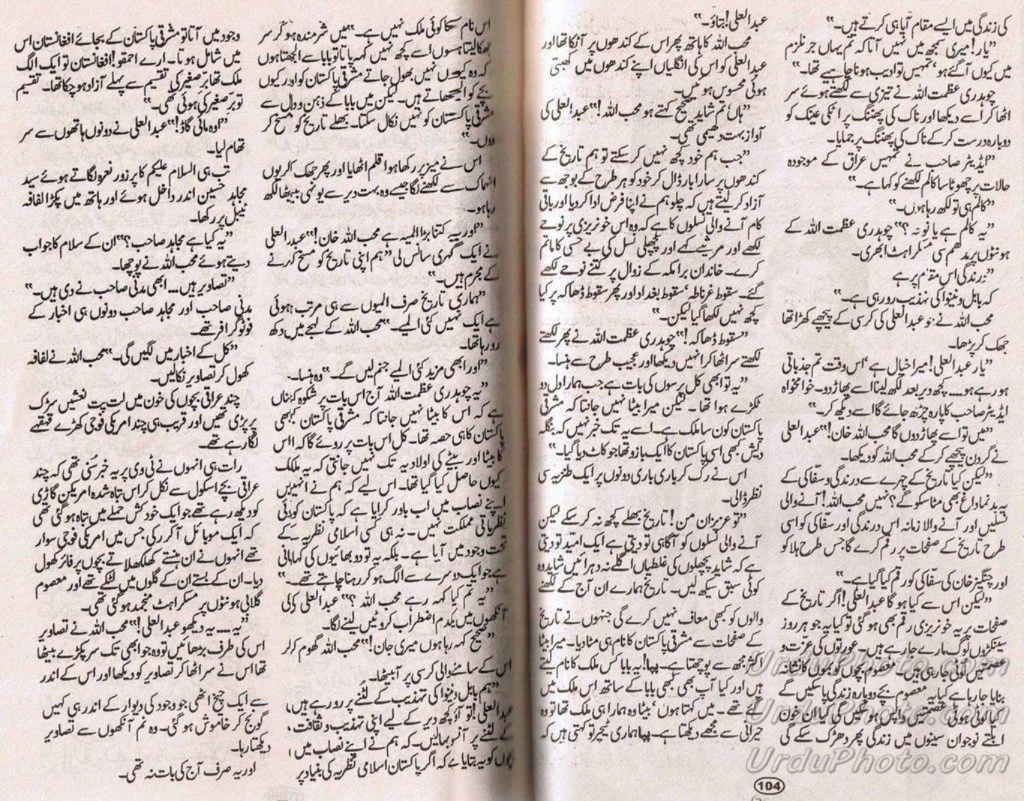 کی زندگی میں ایسے مقام آیا ہی کرتے ہیں۔“
”یار! میری سمجھ میں نہیں آتا کہ تم یہاں جرنلزم
میں کیوں آ گئے ہو‘ تمہیں تو ادیب ہونا چاہیے تھا۔“
چوہدری عظمت اللہ نے تیزی سے لکھتے ہوئے سر
اٹھا کر اسے دیکھا اور ناک کی پھننگ پر اٹکی عینک کو
دوبارہ درست کر کے ناک کی پھننگ پر جمایا۔
”ایڈیٹر صاحب نے تمہیں عراق کے موجودہ
حالات پر چھوٹا سا کالم لکھنے کو کہا ہے۔“
”کالم ہی تو لکھ رہا ہوں۔“
”یہ کالم ہے یا نوحہ؟“ چوہدری عظمت اللہ کے
ہونٹوں پر مدھم سی مسکراہٹ ابھری۔
”زندگی اس مقام پر ہے
کہ بابل و نینوا کی تہذیب رو رہی ہے۔“
محب اللہ نے جو عبدالعلی کی کرسی کے پیچھے کھڑا تھا
جھک کر پڑھا۔
”یار عبدالعلی! میرا خیال ہے‘ اس وقت تم جذباتی
ہو رہے ہو۔۔۔ کچھ دیر بعد لکھ لینا اسے پھاڑ دو۔ خوامخواہ
ایڈیٹر صاحب کا پارہ چڑھ جائے گا اسے دیکھ کر۔“
”میں تو اسے پھاڑوں گا محب اللہ خان!“ عبدالعلی
نے گردن پیچھے کر کے محب اللہ کو دیکھا۔
”لیکن کیا تاریخ کے چہرے سے درندگی و سفاکی کے
یہ بدنما داغ بھی مٹا سکو گے؟ نہیں محب اللہ! آنے والی
نسلیں اور آنے والا زمانہ اس درندگی اور سفاکی کو اسی
طرح تاریخ کے صفحات پر رقم کرے گا جس طرح ہلاکو
اور چنگیز خان کی سفاکی کو رقم کیا گیا ہے۔“
”لیکن اس سے کیا ہو گا عبدالعلی! اگر تاریخ کے
صفحات پر یہ خونریزی رقم بھی ہو گئی تو کیا یہ جو ہر روز
سینکڑوں لوگ مارے جا رہے ہیں۔ عورتوں کی عزت و
عصمتیں لوٹی جا رہی ہیں۔ معصوم بچوں کو بموں کا نشانہ
بنایا جا رہا ہے کیا یہ معصوم بچے دوبارہ زندگی پا سکیں گے
کیا لوٹی ہوئی عصمتیں واپس ہو سکیں گی کیا ان خون
ابلتے نوجوان سینوں میں زندگی پھر دھڑک سکے گی
عبدالعلی! بتاؤ۔“
محب اللہ کا ہاتھ پھر اس کے کندھوں پر آ ٹکا تھا اور
عبدالعلی کو اس کی انگلیاں اپنے کندھوں میں کھبتی
ہوئی محسوس ہوئیں۔
”ہاں تم شاید صحیح کہتے ہو محب اللہ!“ عبدالعلی کی
آواز بہت دھیمی تھی۔
”جب ہم خود کچھ نہیں کر سکتے تو ہم تاریخ کے
کندھوں پر سارا بار ڈال کر خود کو ہر طرح کے بوجھ سے
آزاد کر لیتے ہیں کہ چلو ہم نے اپنا فرض ادا کر دیا اور باقی
کام آنے والی نسلوں کا ہے کہ وہ اس خونریزی پر نوحے
لکھے اور مرثیے کہے اور پچھلی نسل کی بے حسی کا ماتم
کرے۔ خاندان برامکہ کے زوال پر کتنے نوحے لکھے
گئے۔ سقوط غرناطہ‘ سقوط بغداد اور پھر سقوط ڈھاکہ پر کیا
کچھ نہیں لکھا گیا لیکن۔“
”سقوط ڈھاکہ!“ چوہدری عظمت اللہ نے پھر لکھتے
لکھتے سر اٹھا کر انہیں دیکھا اور عجیب طرح سے ہنسا۔
”یہ تو ابھی کل پرسوں کی بات ہے جب ہمارا اول دو
ٹکڑے ہوا تھا۔ لیکن میرا بیٹا نہیں جانتا کہ مشرقی
پاکستان کون سا ملک ہے۔ اسے یہ تک خبر نہیں کہ بنگلہ
دیش بھی اسی پاکستان کا ایک بازو تھا جو کاٹ دیا گیا۔“
اس نے رک کر باری باری دونوں پر ایک طنزیہ سی
نظر ڈالی۔
”تو عزیزان من! تاریخ بھلے کچھ نہ کر سکے لیکن
آنے والی نسلوں کو آگاہی تو دیتی ہے ایک امید تو دیتی
ہے کہ شاید پچھلوں کی غلطیاں اگلے نہ دہرائیں شاید وہ
کوئی سبق سیکھ لیں۔ تاریخ ہمارے ان آج کے لکھنے
والوں کو کبھی معاف نہیں کرے گی جنہوں نے تاریخ
کے صفحات سے مشرقی پاکستان کا نام ہی مٹا دیا۔ میرا بیٹا
اکثر مجھ سے پوچھتا ہے۔ پپا! یہ بابا کس ملک کا نام لیتے
ہیں اور کیا آپ بھی کبھی بابا کے ساتھ اس ملک میں
گئے تھے۔ میں کہتا ہوں‘ بیٹا وہ ہمارا ہی ملک تھا تو وہ
حیرانی سے مجھے دیکھتا ہے۔ پپا ہماری ٹیچر تو کہتی ہیں کہ
104
اس نام کا کوئی ملک نہیں ہے۔“ میں شرمندہ ہو کر سر
جھکا لیتا ہوں اسے کچھ نہیں کہہ پاتا تو بابا سے الجھتا ہوں
کہ وہ کیوں نہیں بھول جاتے مشرقی پاکستان کو اور کیوں
بچے کو الجھاتے ہیں۔ لیکن میں بابا کے ذہن و دل سے
مشرقی پاکستان کو نہیں نکال سکتا۔ بھلے تاریخ کو مسخ کر
دوں۔“
اس نے میز پر رکھا ہوا قلم اٹھایا اور پھر جھک کر یوں
انہماک سے لکھنے لگا جیسے وہ بہت دیر سے یونہی بیٹھا لکھ
رہا ہو۔
”اور یہ کتنا بڑا المیہ ہے محب اللہ خان!“ عبدالعلی
نے ایک گہری سانس لی ”ہم اپنی تاریخ کو مسخ کرنے
کے مجرم ہیں۔“
”ہماری تاریخ صرف المیوں سے ہی مرتب ہوئی
ہے ایک نہیں کئی المیے۔“ محب اللہ کے لہجے میں دکھ
رو رہا تھا۔
”اور ابھی مزید کئی المیے جنم لیں گے۔“ وہ ہنسا۔
”یہ چوہدری عظمت اللہ آج اس بات پر شکوہ کناں
ہے کہ اس کا بیٹا نہیں جانتا کہ مشرقی پاکستان کبھی
پاکستان کا ہی حصہ تھا۔ کل اس بات پر روئے گا کہ اس
کا بیٹا اور بیٹے کی اولاد یہ تک نہیں جانتی کہ یہ ملک
کیوں حاصل کیا گیا تھا۔ اس لیے کہ ہم نے انہیں
اپنے نصاب میں اب باور کرایا ہے کہ پاکستان کوئی
نظریاتی مملکت نہیں۔ نہ ہی کسی اسلامی نظریہ کے
تحت وجود میں آیا ہے۔ بلکہ یہ تو دو بھائیوں کی کہانی
ہے جو ایک دوسرے سے الگ ہو کر رہنا چاہتے تھے۔“
”یہ تم کیا کہہ رہے محب اللہ؟“ عبدالعلی کی
آنکھوں میں یکدم اضطراب کروٹیں لینے لگا۔
”صحیح کہہ رہا ہوں میری جان!“ محب اللہ گھوم کر
اس کے سامنے والی کرسی پر آ بیٹھا۔
”تم بابل و نینوا کی تہذیب کے لٹنے پر رو رہے ہیں،
عبدالعلی! تو آؤ کچھ دیر کے لیے اپنی تہذیب و ثقافت،
کے لٹنے پر آنسو بہا لیں۔ کہ ہم نے اپنے نصاب میں
بچوں کو یہ بتایا ہے کہ اگر پاکستان اسلامی نظریہ کی بنیاد پر
وجود میں آتا تو مشرقی پاکستان کے بجائے افغانستان اس
میں شامل ہوتا۔ ارے احمقو! افغانستان تو ایک الگ
ملک تھا برصغیر کی تقسیم سے پہلے آزاد ہو چکا تھا۔ تقسیم
تو برصغیر کی ہوئی تھی۔“
”اوہ مائی گاڈ!“ عبدالعلی نے دونوں ہاتھوں سے سر
تھام لیا۔
تب ہی السلام علیکم کا پر زور نعرہ لگاتے ہوئے سید
مجاہد حسین اندر داخل ہوئے اور ہاتھ میں پکڑا لفافہ
ٹیبل پر رکھا۔
”یہ کیا ہے مجاہد صاحب؟“ ان کے سلام کا جواب
دیتے ہوئے محب اللہ نے پوچھا۔
”تصاویر ہیں۔۔۔ ابھی مدنی صاحب نے دی ہیں۔“
مدنی صاحب اور مجاہد صاحب دونوں ہی اخبار کے
فوٹوگرافر تھے۔
”کل کے اخبار میں لگیں گی۔“ محب اللہ نے لفافہ
کھول کر تصاویر نکالیں۔
چند عراقی بچوں کی خون میں لت پت نعشیں سڑک
پر پڑی تھیں اور قریب ہی چند امریکی فوجی کھڑے قہقہے
لگا رہے تھے۔
رات ہی انہوں نے ٹی وی پر یہ خبر سنی تھی کہ چند
عراقی بچے اسکول سے نکل کر اس تباہ شدہ امریکن گاڑی
کو دیکھ رہے تھے جو ایک خودکش حملے میں تباہ ہو گئی تھی
کہ ایک موبائل آ کر رکی جس میں امریکی فوجی سوار
تھے انہوں نے ان ہنستے کھلکھلاتے بچوں پر فائر کھول
دیا۔ ان کے بستے ان کے گلوں میں لٹکے تھے اور معصوم
گلابی ہونٹوں پر مسکراہٹ منجمد ہو گئی تھی۔
”یہ۔۔۔ یہ دیکھو عبدالعلی!“ محب اللہ نے تصاویر
اس کی طرف بڑھائیں تو وہ جو ابھی تک سر پکڑے بیٹھا
تھا اس نے سر اٹھا کر تصاویر کو دیکھا اور اس کے اندر
سے ایک چیخ اٹھی جو وجود کی دیوار کے اندر ہی کہیں
گونج کر خاموش ہو گئی۔ وہ نم آنکھوں سے تصاویر
دیکھتا رہا۔
اور یہ صرف آج کی بات نہ تھی۔
UrduPhoto.com
UrduPhoto.com
UrduPhoto.com